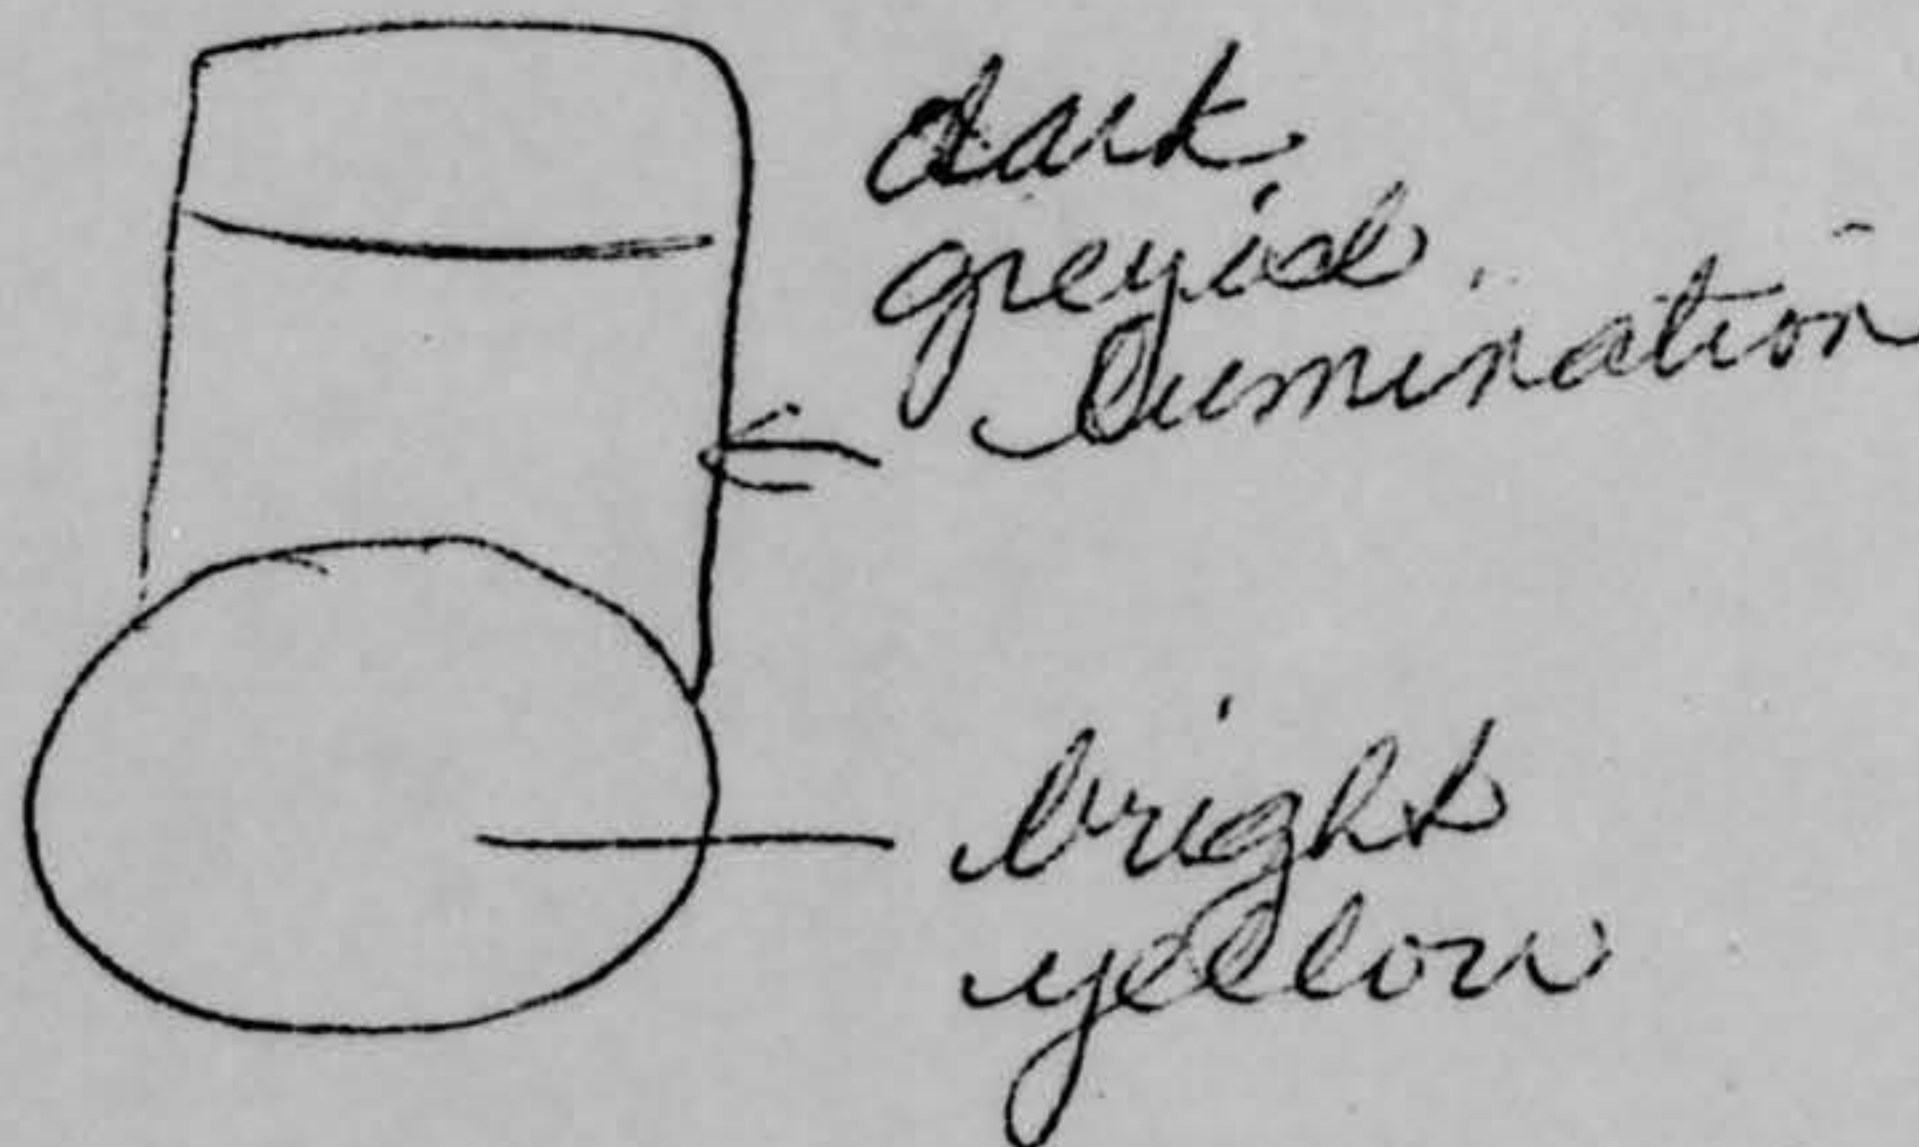 dark
greyish
lumination
bright
yellow